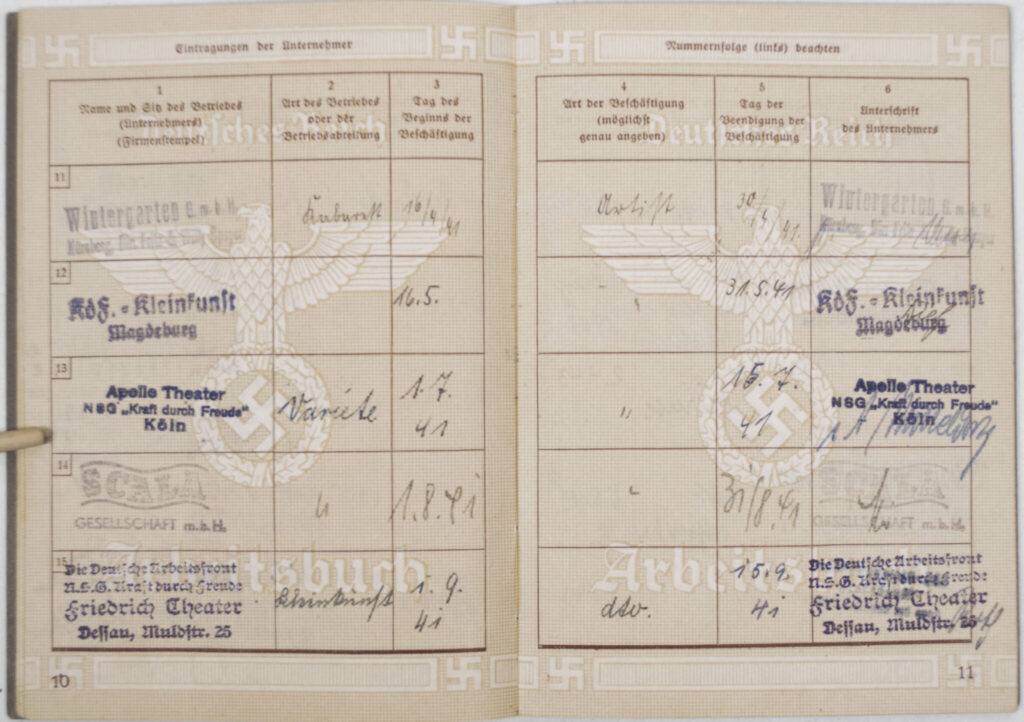 Eintragungen der Unternehmer
1
Name und Sitz des Betriebes
(Unternehmers)
(Firmenstempel)
2
Art des Betriebes
oder der
Betriebsabteilung
3
Tag des
Beginns der
Beschäftigung
11
Wintergarten G.m.b.H.
Nürnberg,
Kabarett
16/4/41
12
KdF.-Kleinkunst
Magdeburg
16.5.
13
Apollo Theater
NSG „Kraft durch Freude"
Köln
Varieté
1.7.
41
14
SCALA
GESELLSCHAFT m.b.H.
"
1.8.41
15
Die Deutsche Arbeitsfront
N.S.G. Kraft durch Freude
Friedrich Theater
Dessau, Muldstr. 25
Kleinkunst
1.9.
41
Deutsches Reich
Arbeitsbuch
10
Nummernfolge (links) beachten
4
Art der Beschäftigung
(möglichst
genau angeben)
5
Tag der
Beendigung der
Beschäftigung
6
Unterschrift
des Unternehmers
Artist
30/4/41
Wintergarten G.m.b.H.
Nürnberg,
"
31.5.41
KdF.-Kleinkunst
Magdeburg
"
15.7.
41
Apollo Theater
NSG „Kraft durch Freude"
Köln
"
31/8.41
SCALA
GESELLSCHAFT m.b.H.
dto.
15.9.
41
Die Deutsche Arbeitsfront
N.S.G. Kraft durch Freude
Friedrich Theater
Dessau, Muldstr. 25
Deutsches Reich
Arbeitsbuch
11